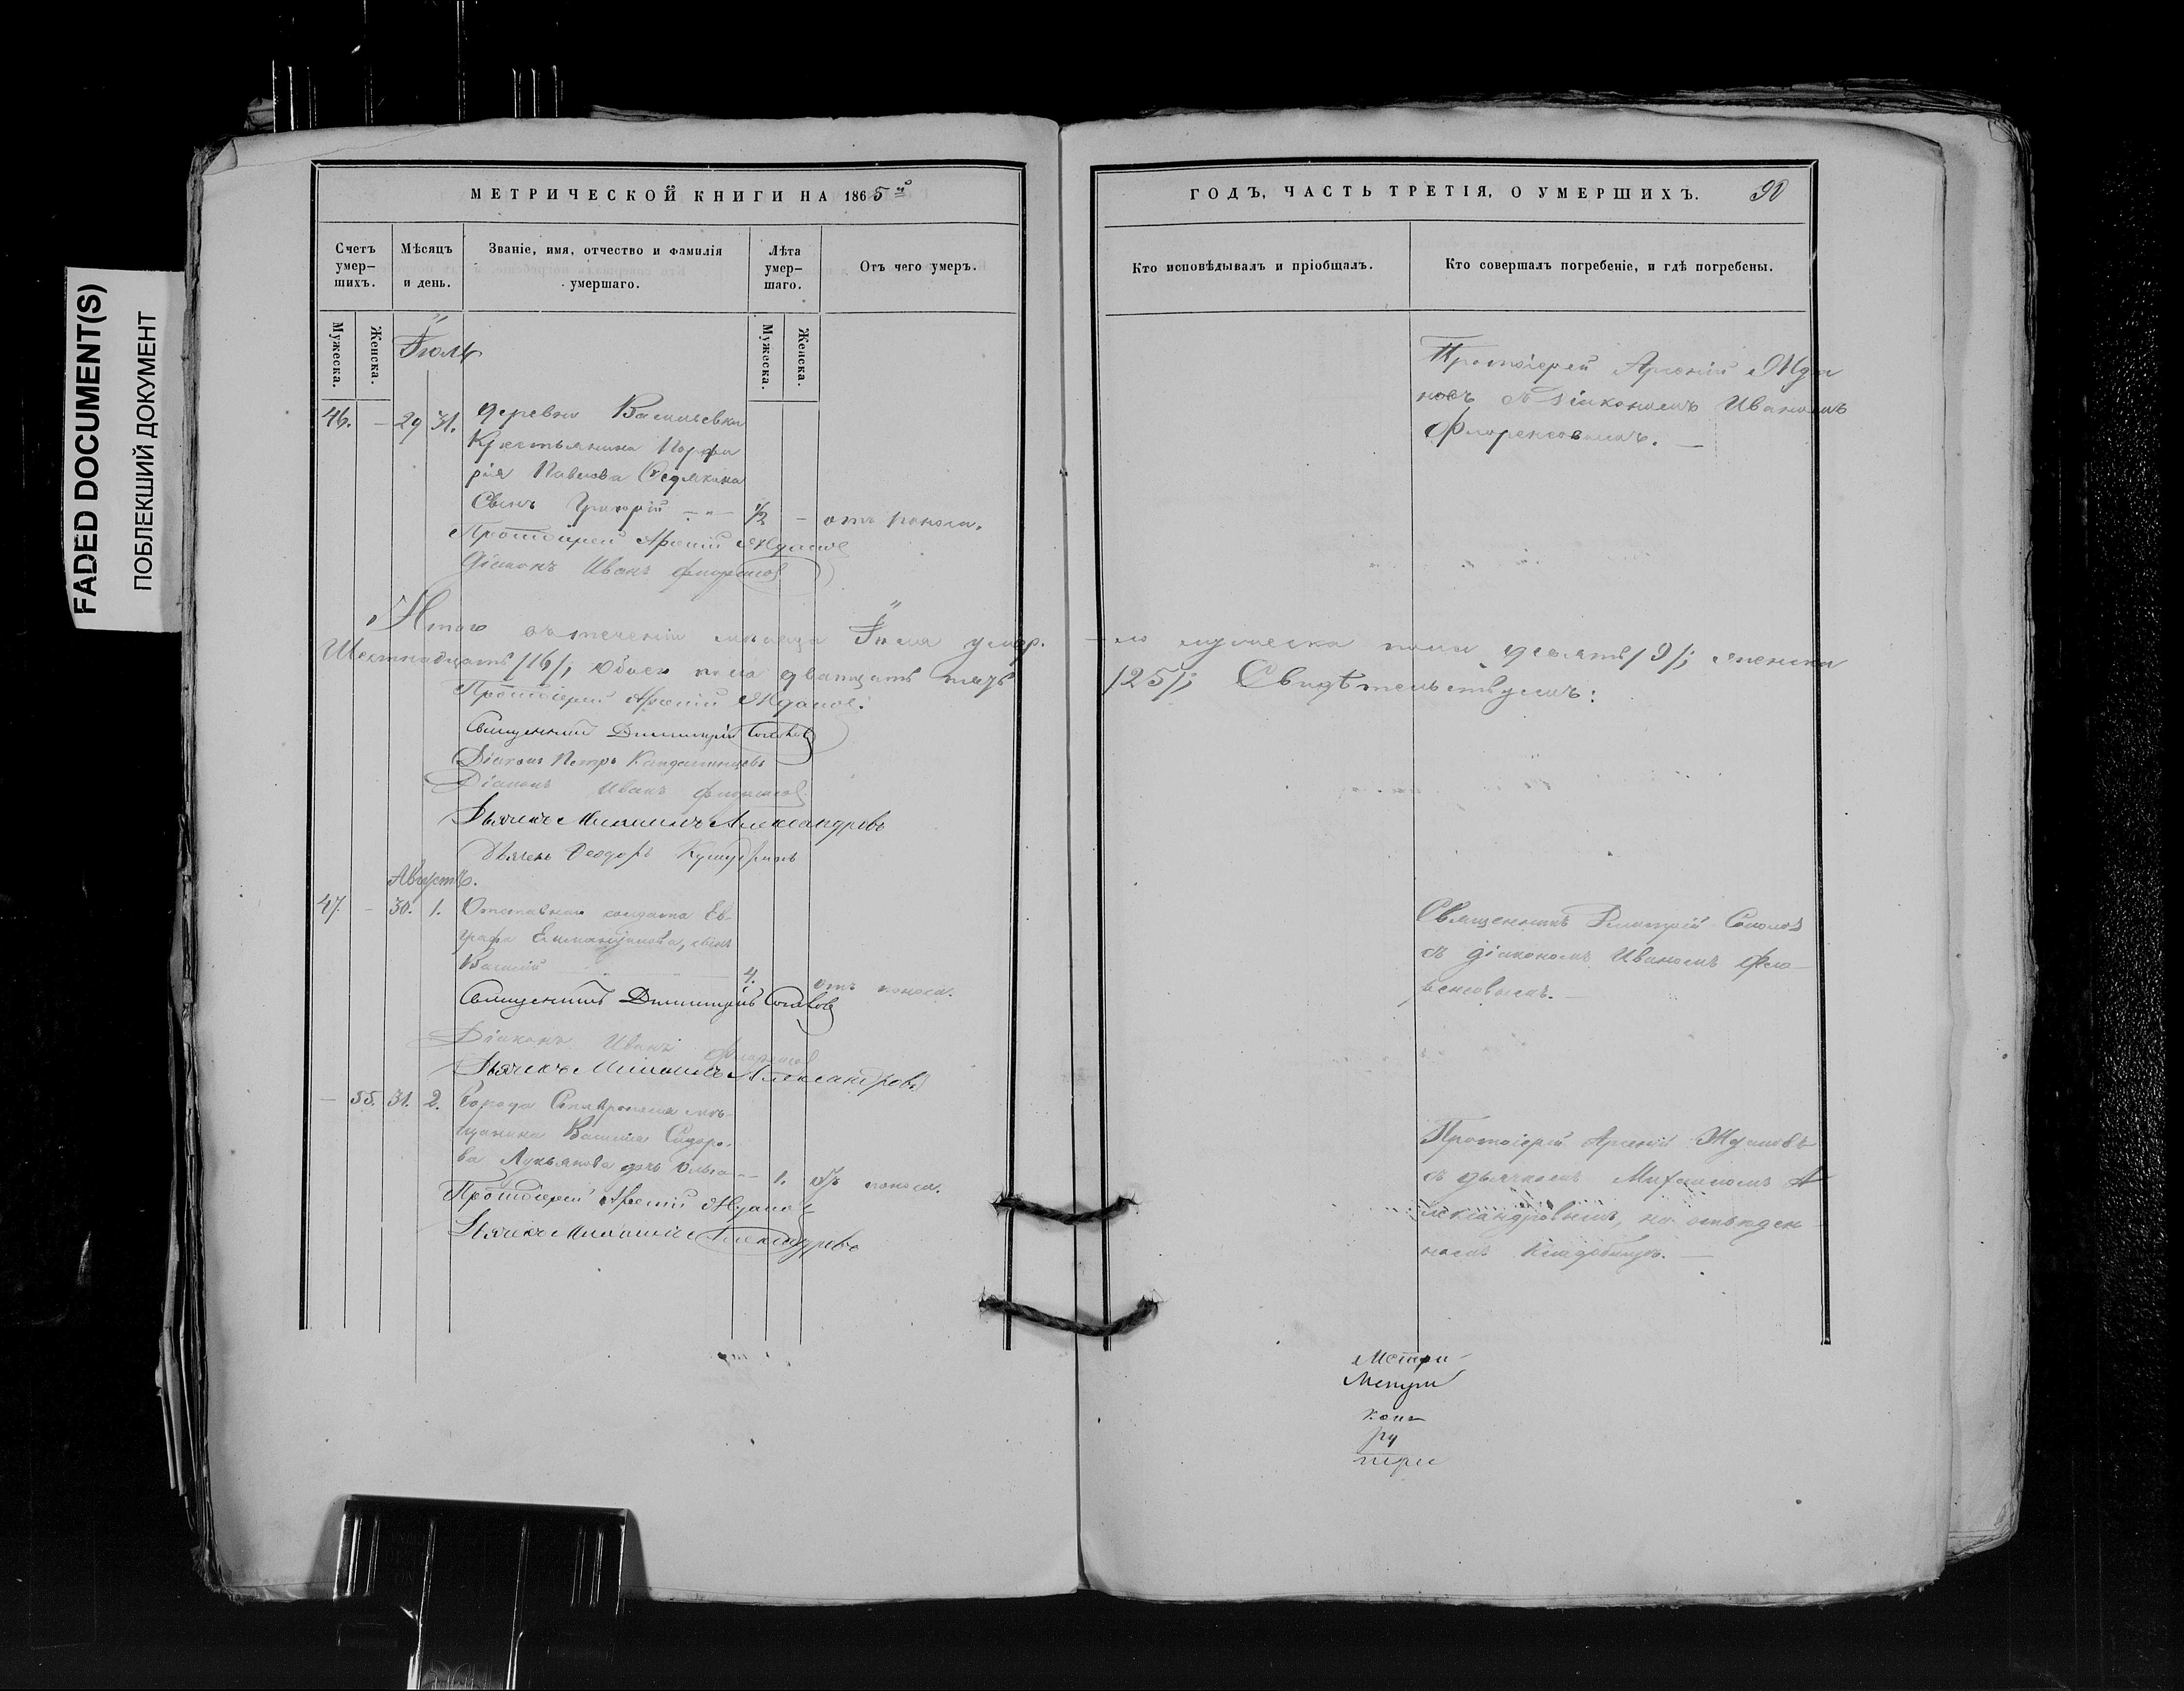 FADED DOCUMENT(S)
ПОБЛЕКШИЙ ДОКУМЕНТ
МЕТРИЧЕСКОЙ КНИГИ НА 1865й
Счетъ умер-шихъ.
Мѣсяцъ и день.
Званіе, имя, отчество и фамилія умершаго.
Лѣта умер-шаго.
Отъ чего умеръ.
Мужеска.
Женска.
Мужеска.
Женска.
Іюль
46. – 29 31. деревни Васильевки
Крестьянина Порфи
рія Павлова Седякина
Сынъ Григорій 1/2 – отъ поноса.
Протоіерей Арсеній Ждановъ
Діаконъ Иванъ
Итого въ теченіи мѣсяца Іюля умер-
Шестнадцать /16/, обоего пола двадцать пять
Протоіерей Арсеній Ждановъ
Священникъ Димитрій Соколовъ
Діаконъ Петръ
Діаконъ Иванъ
Дьячекъ Михаилъ Александровъ
Дьячекъ Ѳеодоръ
Августъ.
47. – 30. 1. Отставнаго солдата Ев-
графа сынъ
Василій 4. отъ поноса.
Священникъ Димитрій Соколовъ
Діаконъ Иванъ
Дьячекъ Михаилъ Александровъ
– 35. 31. 2. Города Ставрополя мѣ-
щанина Василія Сидоро-
ва Лукьянова дочь Ольга 1. Отъ поноса.
Протоіерей Арсеній Ждановъ
Дьячекъ Михаилъ Александровъ
ГОДЪ, ЧАСТЬ ТРЕТІЯ, О УМЕРШИХЪ. 90
Кто исповѣдывалъ и пріобщалъ.
Кто совершалъ погребеніе, и гдѣ погребены.
Протоіерей Арсеній Жда
новъ съ діакономъ Иваномъ
Флоренсовымъ. –
-ло мужеска пола девять /9/; женска
/25/; Свидѣтельствуемъ:
Священникъ Димитрій Соколовъ
съ діакономъ Иваномъ Фло-
ренсовымъ. –
Протоіерей Арсеній Ждановъ
съ дьячкомъ Михаиломъ А
лександровымъ, на отведен-
номъ кладбищѣ. –